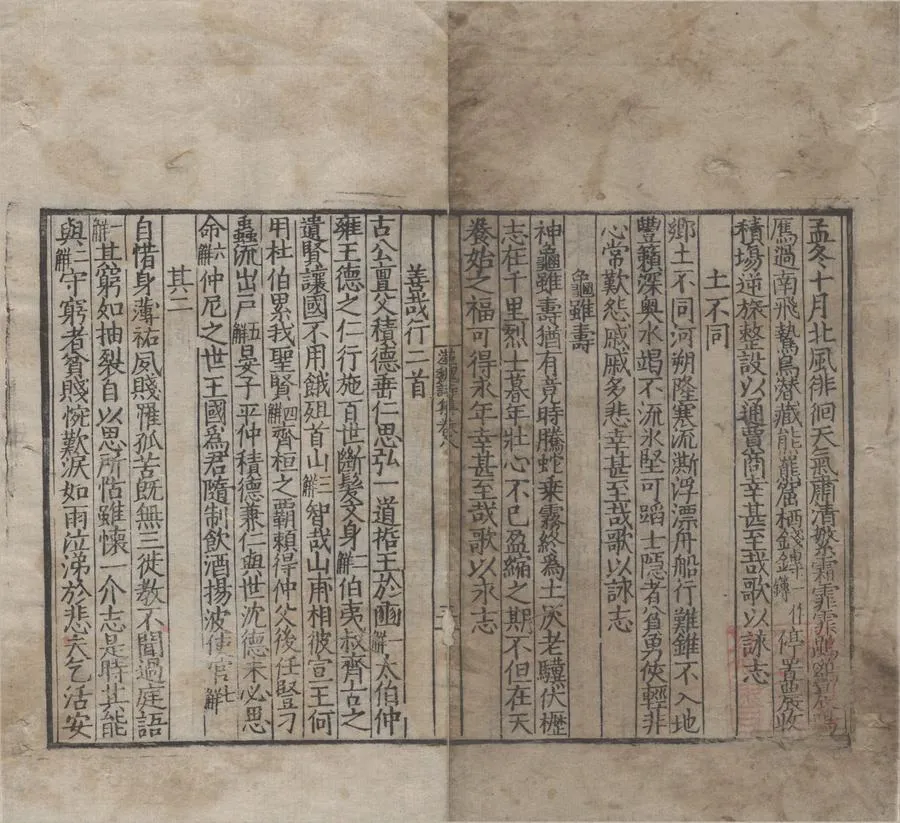 孟冬十月北風徘徊天氣肅清繁霜霏霏鵾雞晨鳴
鴈過南飛鷙鳥潛藏熊羆窟栖錢鎛一作鎒停置農收
積場逆旅整設以通賈商幸甚至哉歌以詠志
土不同
鄉土不同河朔隆寒流澌浮漂舟船行難錐不入地
豐籟深奧水竭不流氷堅可蹈士隱者貧勇俠輕非
心常歎怨戚戚多悲幸甚至哉歌以詠志
龜雖壽
神龜雖壽猶有竟時騰蛇乗霧終為土灰老驥伏櫪
志在千里烈士暮年壯心不已盈縮之期不但在天
養怡之福可得永年幸甚至哉歌以永志
漢魏詩集卷八
善哉行二首
古公亶父積德垂仁思弘一道哲王於豳一解太伯仲
雍王德之仁行施百世斷髮文身二解伯夷叔齊古之
遺賢讓國不用餓殂首山三解智哉山甫相彼宣王何
用杜伯累我聖賢四解齊桓之霸頼得仲父後任豎刁
蟲流出戶五解晏子平仲積德兼仁與世沈德未必思
命六解仲尼之世王國為君隨制飲酒揚波使官七解
其二
自惜身薄祜夙賤罹孤苦既無三徙教不聞過庭語
一解其窮如抽裂自以思所怙雖懷一介志是時其能
與二解守窮者貧賤惋歎淚如雨泣涕於悲夫乞活安